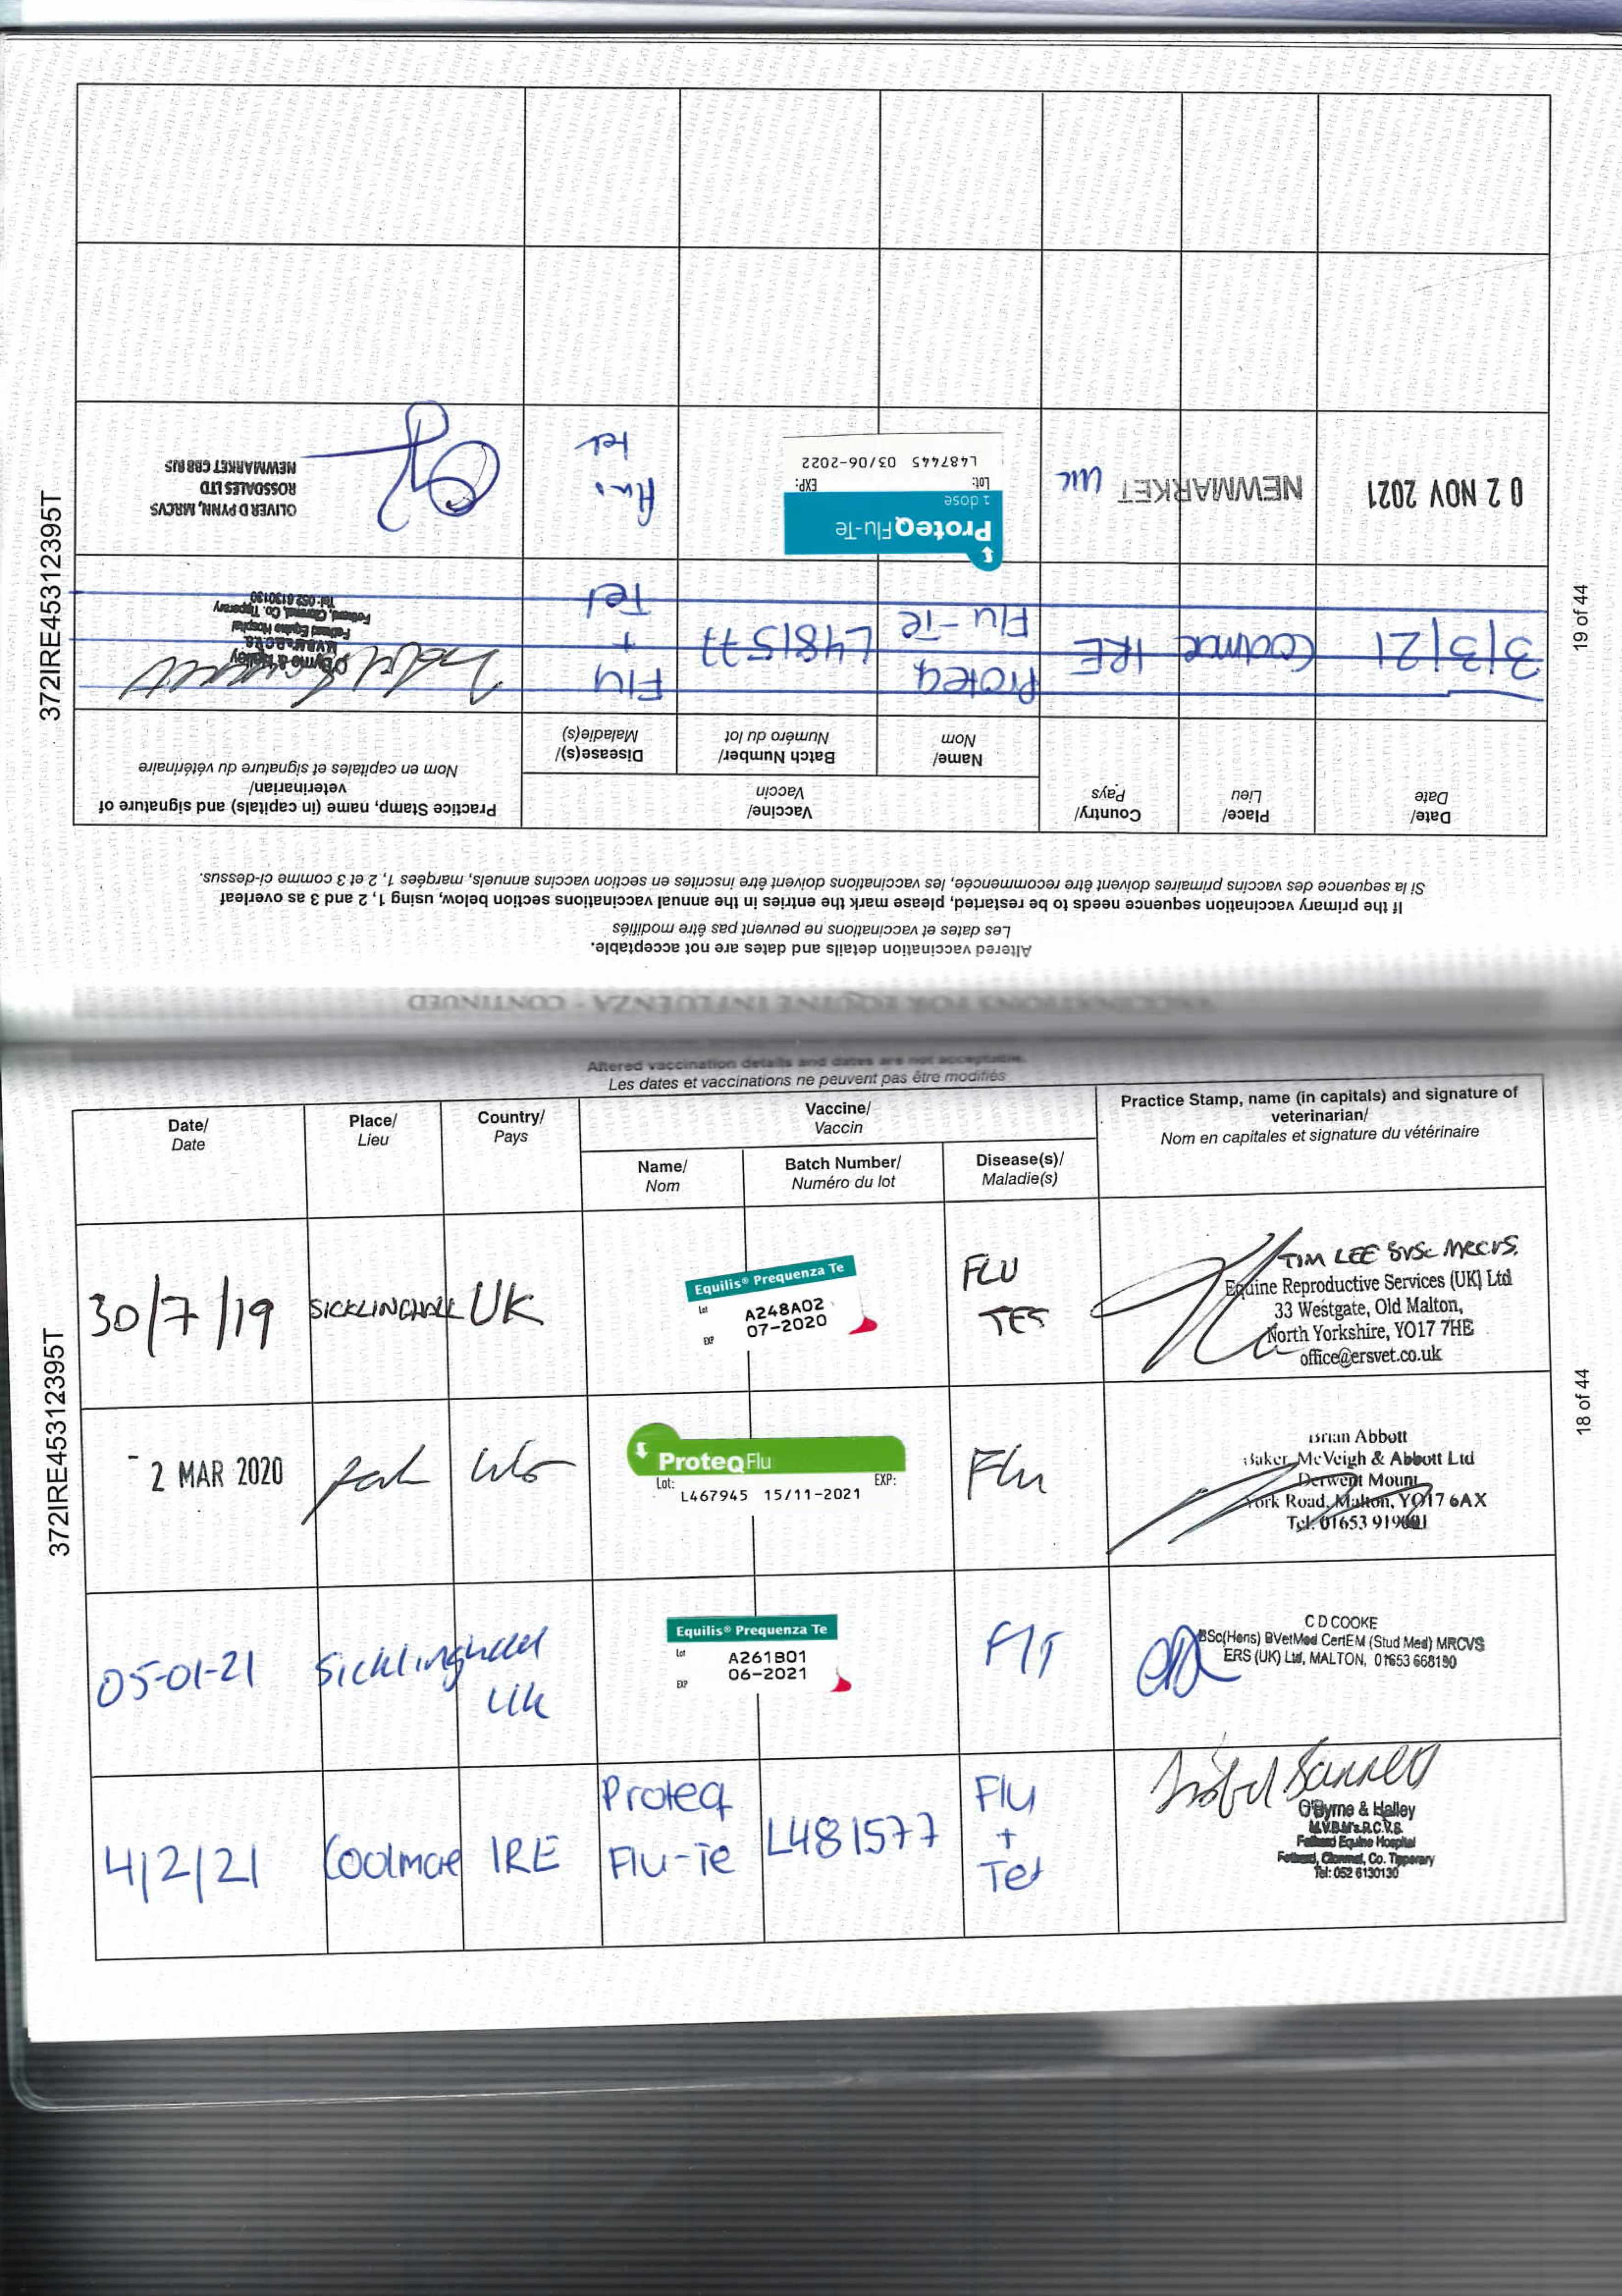 Altered vaccination details and dates are not acceptable.
Les dates et vaccinations ne peuvent pas être modifiés
Date/
Date
Place/
Lieu
Country/
Pays
Vaccine/
Vaccin
Name/
Nom
Batch Number/
Numéro du lot
Disease(s)/
Maladie(s)
Practice Stamp, name (in capitals) and signature of
veterinarian/
Nom en capitales et signature du vétérinaire
30/7/19
SICKLINGHALL
UK
Equilis® Prequenza Te
Lot A248A02
EXP 07-2020
FLU
TET
TIM LEE BVSc MRCVS.
Equine Reproductive Services (UK) Ltd
33 Westgate, Old Malton,
North Yorkshire, YO17 7HE
office@ersvet.co.uk
- 2 MAR 2020
ProteqFlu
Lot: EXP:
L467945 15/11-2021
Flu
Brian Abbott
Baker McVeigh & Abbott Ltd
Derwent Mount
York Road, Malton, YO17 6AX
Tel: 01653 919001
05-01-21
Sicklinghall
UK
Equilis® Prequenza Te
Lot A261B01
EXP 06-2021
F/T
C D COOKE
BSc(Hons) BVetMed CertEM (Stud Med) MRCVS
ERS (UK) Ltd, MALTON, 01653 668190
4/2/21
Coolmore
IRE
Proteq
Flu-Te
L481577
Flu
+
Tet
O'Byrne & Halley
M.V.B.M's.R.C.V.S.
Fethard Equine Hospital
Fethard, Clonmel, Co. Tipperary
Tel: 052 6130130
372IRE453123395T
18 of 44
VACCINATIONS FOR EQUINE INFLUENZA - CONTINUED
Altered vaccination details and dates are not acceptable.
Les dates et vaccinations ne peuvent pas être modifiés
If the primary vaccination sequence needs to be restarted, please mark the entries in the annual vaccinations section below, using 1, 2 and 3 as overleaf
Si la sequence des vaccins primaires doivent être recommencée, les vaccinations doivent être inscrites en section vaccins annuels, marqées 1, 2 et 3 comme ci-dessus.
Date/
Date
Place/
Lieu
Country/
Pays
Vaccine/
Vaccin
Name/
Nom
Batch Number/
Numéro du lot
Disease(s)/
Maladie(s)
Practice Stamp, name (in capitals) and signature of
veterinarian/
Nom en capitales et signature du vétérinaire
3/3/21
Coolmore
IRE
Proteq
Flu-Te
L481577
Flu
+
Tet
O'Byrne & Halley
M.V.B.M's.R.C.V.S.
Fethard Equine Hospital
Fethard, Clonmel, Co. Tipperary
Tel: 052 6130130
02 NOV 2021
NEWMARKET
UK
ProteqFlu-Te
1 dose
Lot: EXP:
L487445 03/06-2022
Flu
Tet
OLIVER D PYNN, MRCVS
ROSSDALES LTD
NEWMARKET CB8 8JS
372IRE453123395T
19 of 44